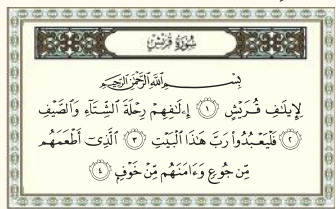 سُورَةُ قُرَيْشٍ
بِسْمِ اللَّهِ الرَّحْمَٰنِ الرَّحِيمِ
لِإِيلَٰفِ قُرَيْشٍ ١ إِۦلَٰفِهِمْ رِحْلَةَ الشِّتَآءِ وَالصَّيْفِ
٢ فَلْيَعْبُدُوا۟ رَبَّ هَٰذَا الْبَيْتِ ٣ الَّذِىٓ أَطْعَمَهُم
مِّن جُوعٍ وَءَامَنَهُم مِّنْ خَوْفٍۭ ٤